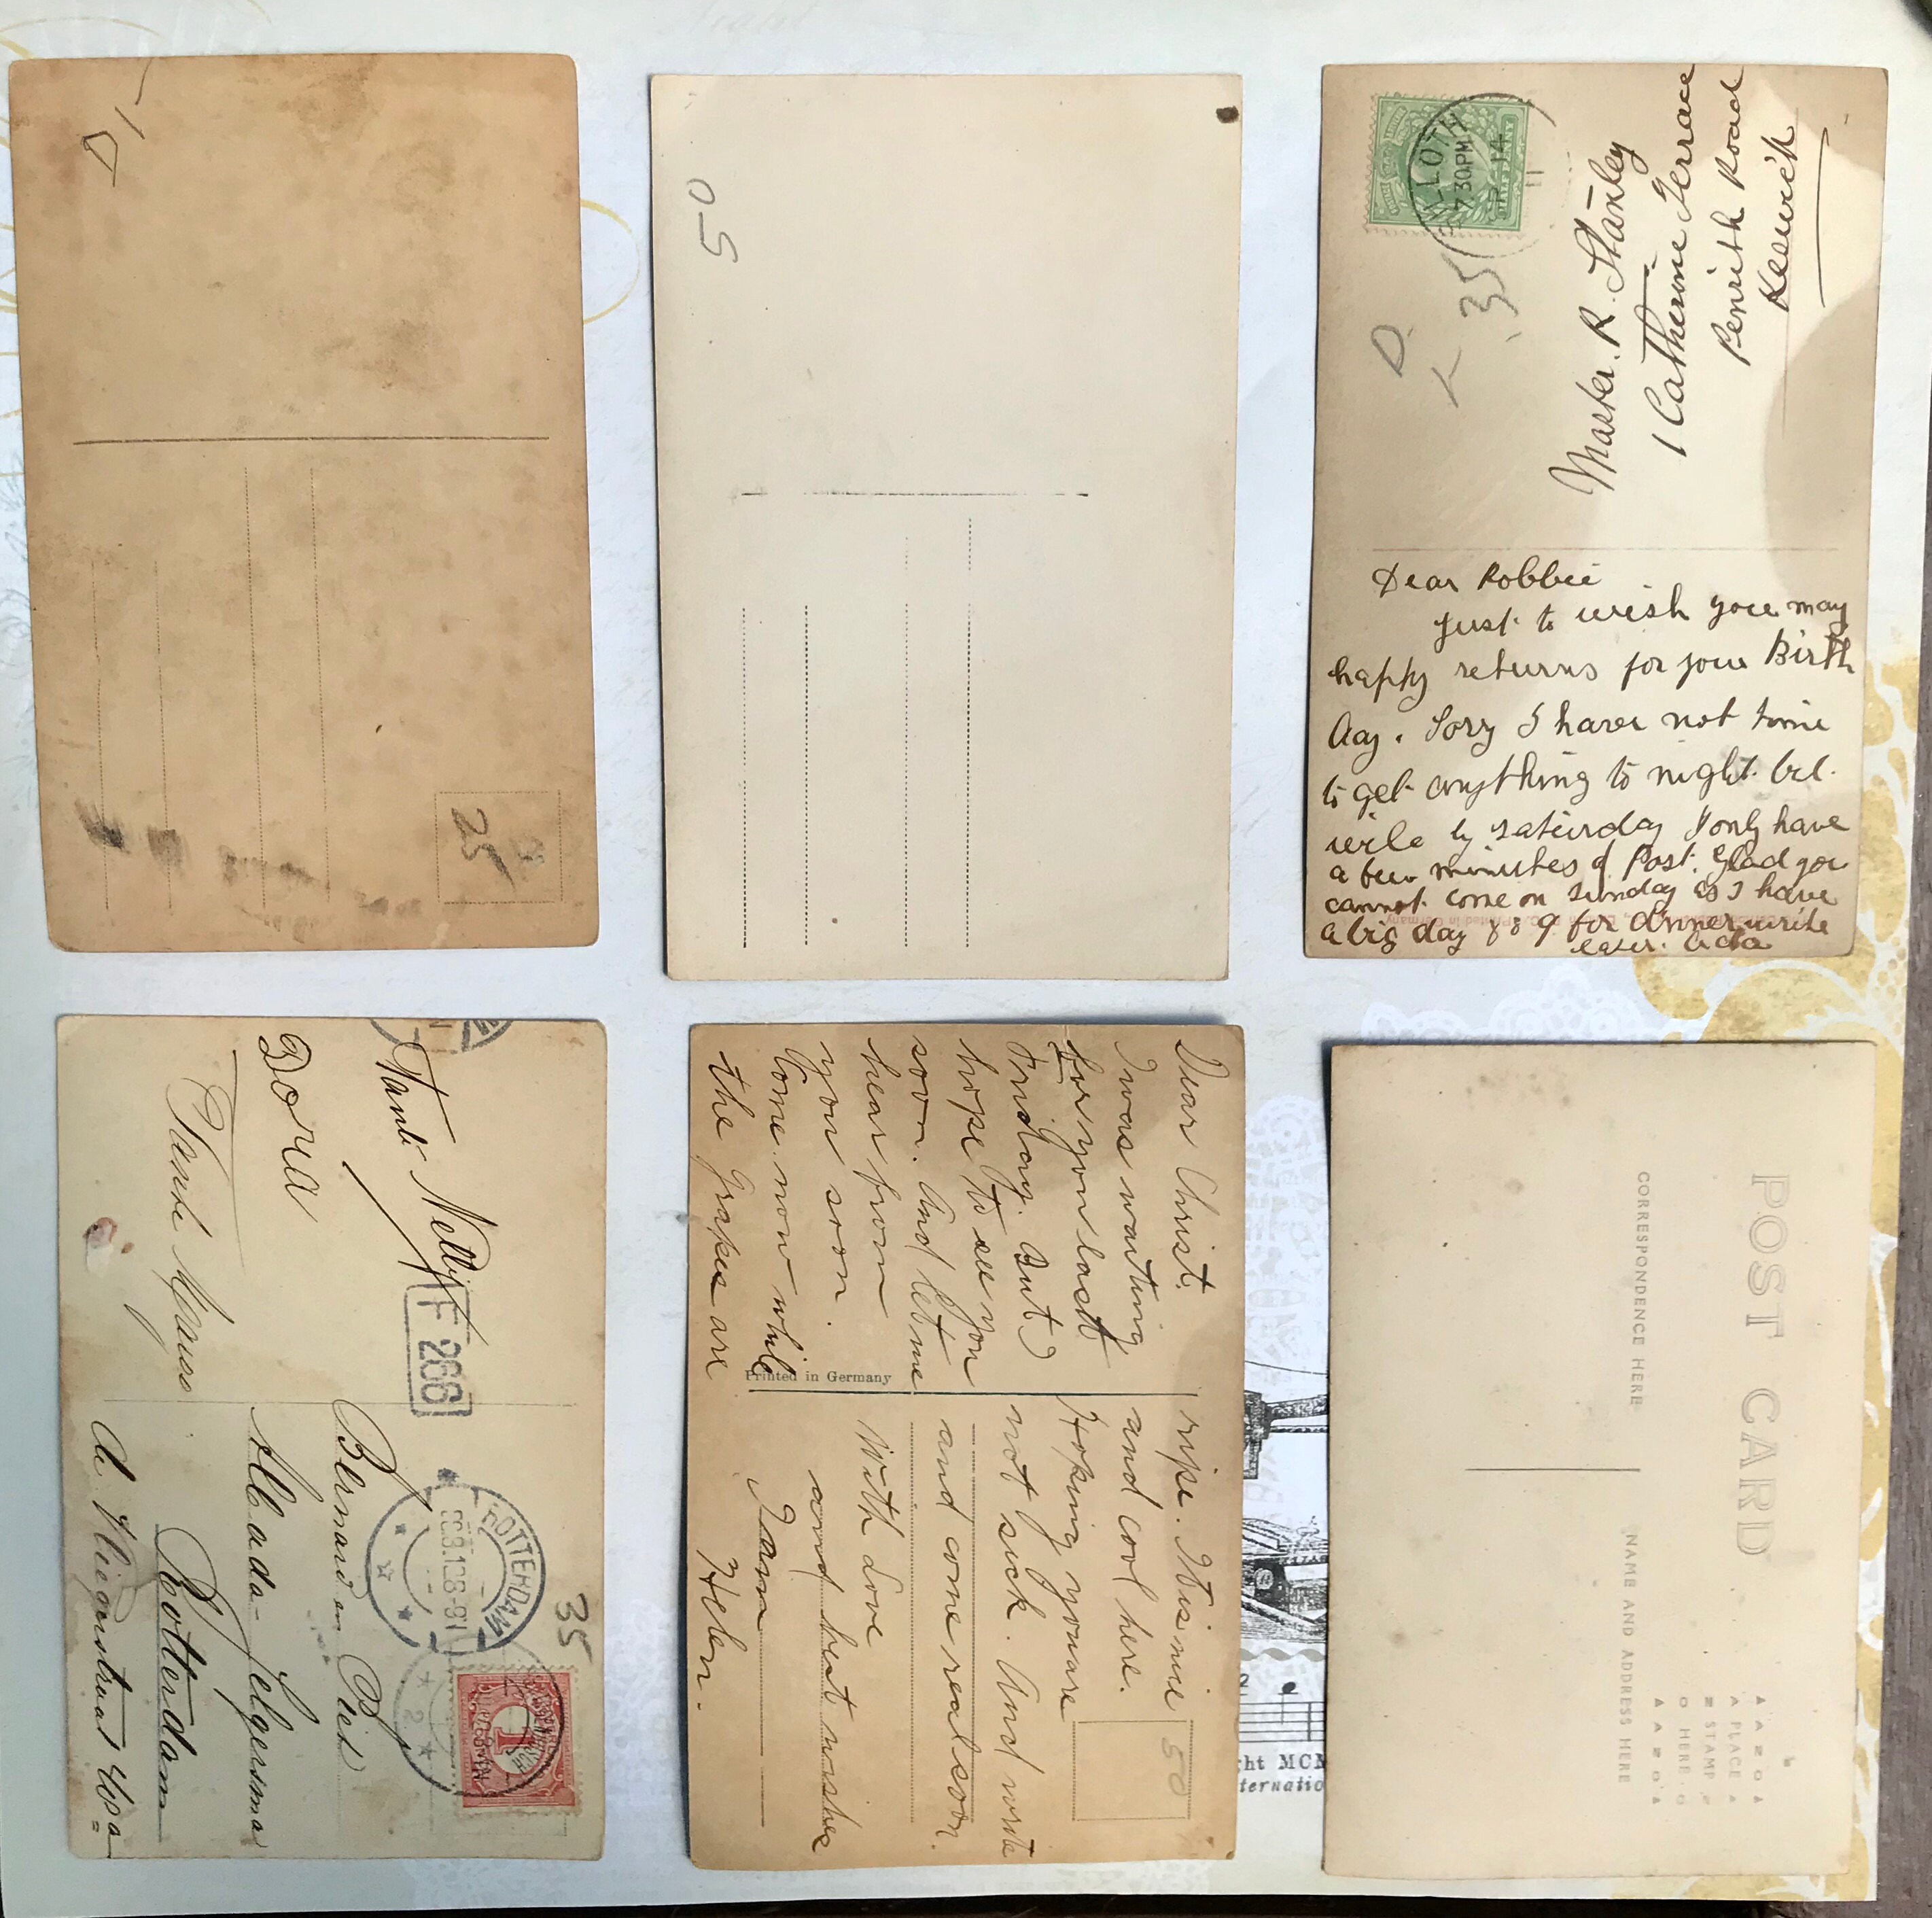 50
SILLOTH
7 30PM
14
11
D.
35
Master. R. Stanley
1 Catherine Terrace
Penrith Road
Keswick
Dear Robbie
Just to wish you many
happy returns for your Birth
day. Sorry I have not time
to get anything to night but
will by saturday I only have
a few minutes of Post. Glad you
cannot come on Sunday as I have
a big day 8 for dinner write
later. Ada
25
Tante Nelly
Dora
F 266
35
ROTTERDAM
1
2
Bernard en Piet
Abada-Jelgersma
Rotterdam
Dear Christ.
I was waiting
for you last
Friday. But I
hope to see you
soon. And let me
hear from
you soon.
Come now while
the grapes are
Printed in Germany
ripe. It is nice
and cool here.
Hoping you are
not sick. And write
and come real soon.
With Love
and best wishes
I am
Helen.
50
POST CARD
CORRESPONDENCE HERE
NAME AND ADDRESS HERE
PLACE
STAMP
HERE
ght MCM
ternatio